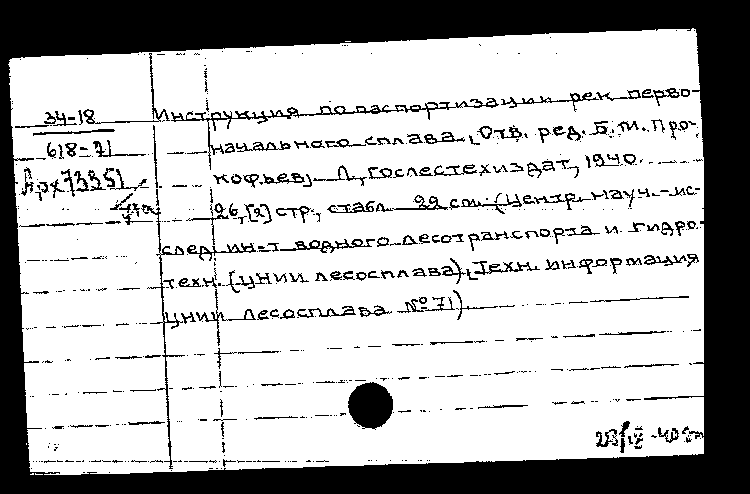 34-18
618-71
Арх 73351
Инструкция по паспортизации рек перво-
начального сплава. [Отв. ред. Б. И. Про-
кофьев]. Л., Гослестехиздат, 1940.
26, [2] стр., с табл. 22 см. (Центр. науч.-ис-
след. ин-т водного лесотранспорта и гидро-
техн. (ЦНИИ лесосплава), [Техн. информация
ЦНИИ лесосплава № 71).